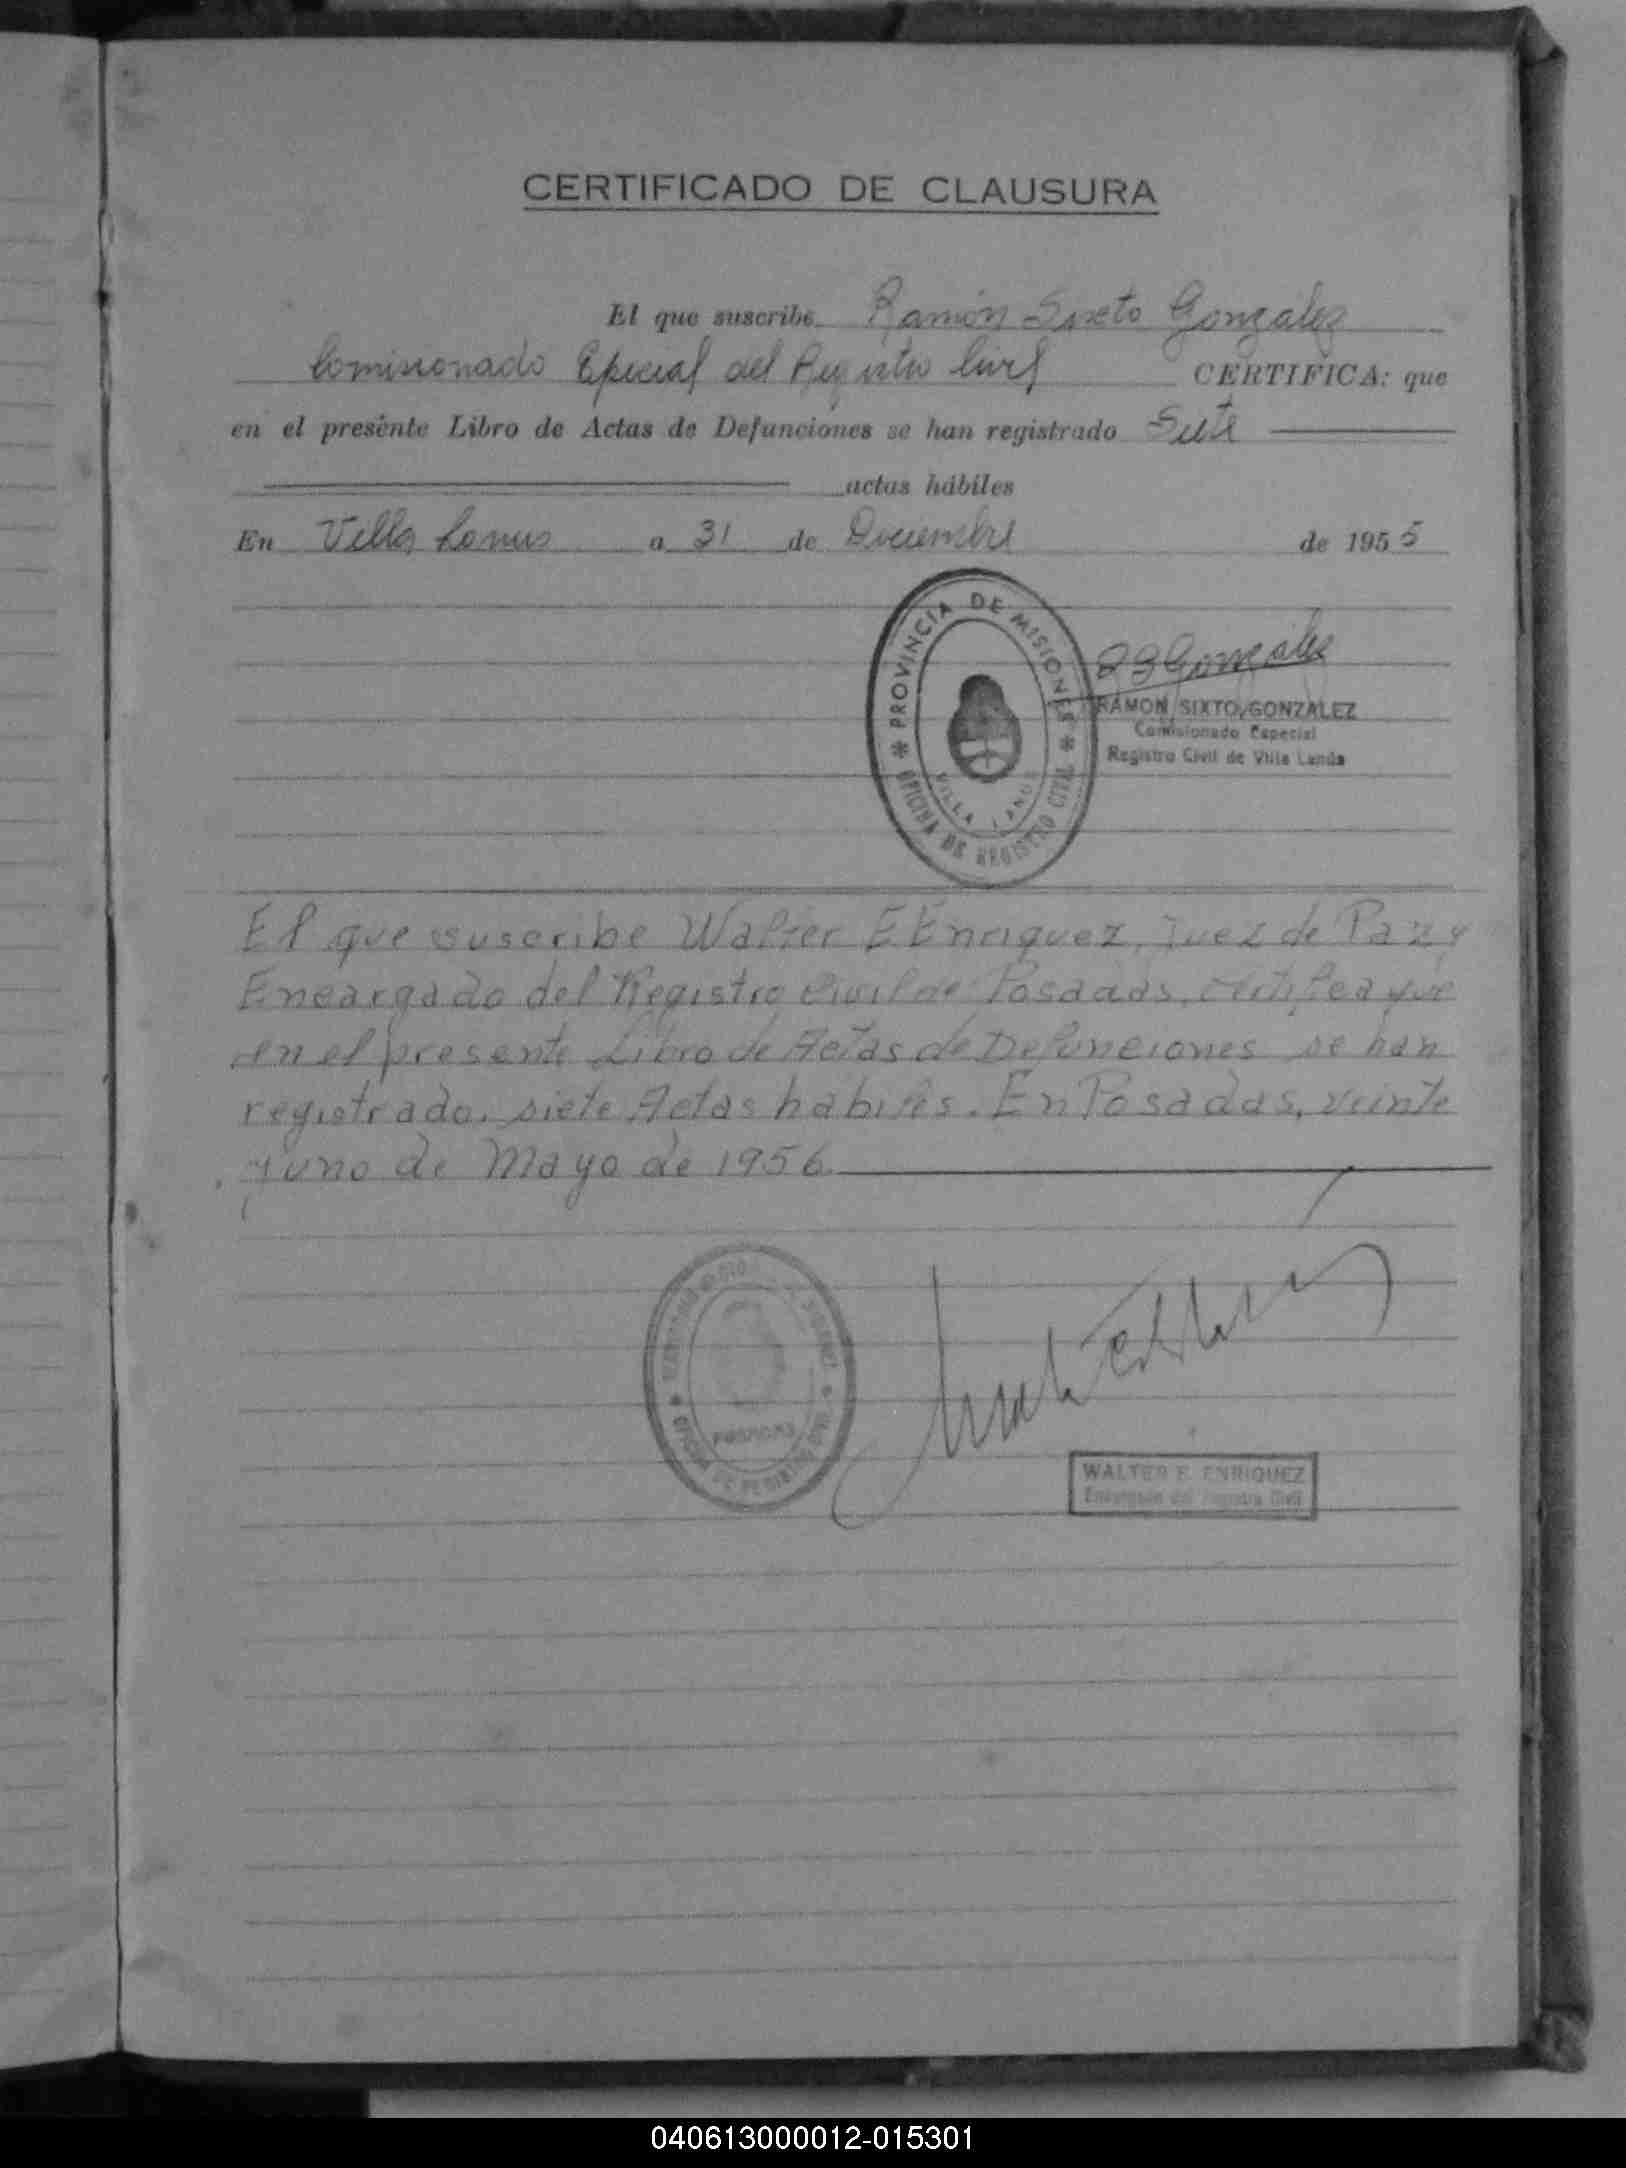 CERTIFICADO DE CLAUSURA
El que suscribe Ramón Sixto González
Comisionado Especial del Registro Civil CERTIFICA: que
en el presente Libro de Actas de Defunciones se han registrado Siete
actas hábiles
En Villa Lanus a 31 de Diciembre de 1955
PROVINCIA DE MISIONES
VILLA LANUS
OFICINA DE REGISTRO CIVIL
RS González
RAMON SIXTO GONZALEZ
Comisionado Especial
Registro Civil de Villa Lanús
El que suscribe Walter E Enriquez, Juez de Paz y
Encargado del Registro Civil de Posadas, certifica que
en el presente Libro de Actas de Defunciones se han
registrado, siete Actas habiles. En Posadas, veinte
y uno de Mayo de 1956
POSADAS
OFICINA DE REGISTRO CIVIL
WALTER E. ENRIQUEZ
Encargado del Registro Civil
040613000012-015301